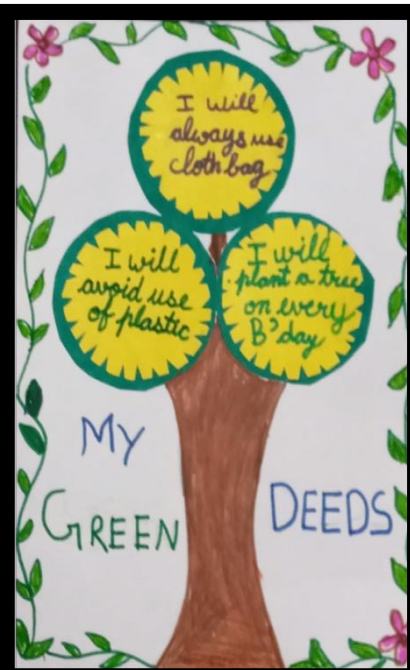 I will
always use
cloth bag
I will
avoid use
of plastic
I will
plant a tree
on every
B'day
MY
GREEN
DEEDS